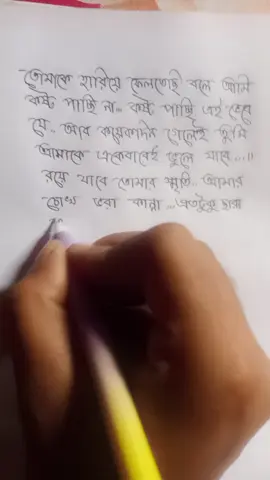 তোমাকে হারিয়ে ফেলতেছি বলে আমি
কষ্ট পাচ্ছি না.. কষ্ট পাচ্ছি এই ভেবে
যে.. আর কয়েকদিন গেলেই তুমি
আমাকে একেবারেই ভুলে যাবে....!!
রয়ে যাবে তোমার স্মৃতি.. আমার
চোখ ভরা কান্না ..এতটুকু ছাড়া